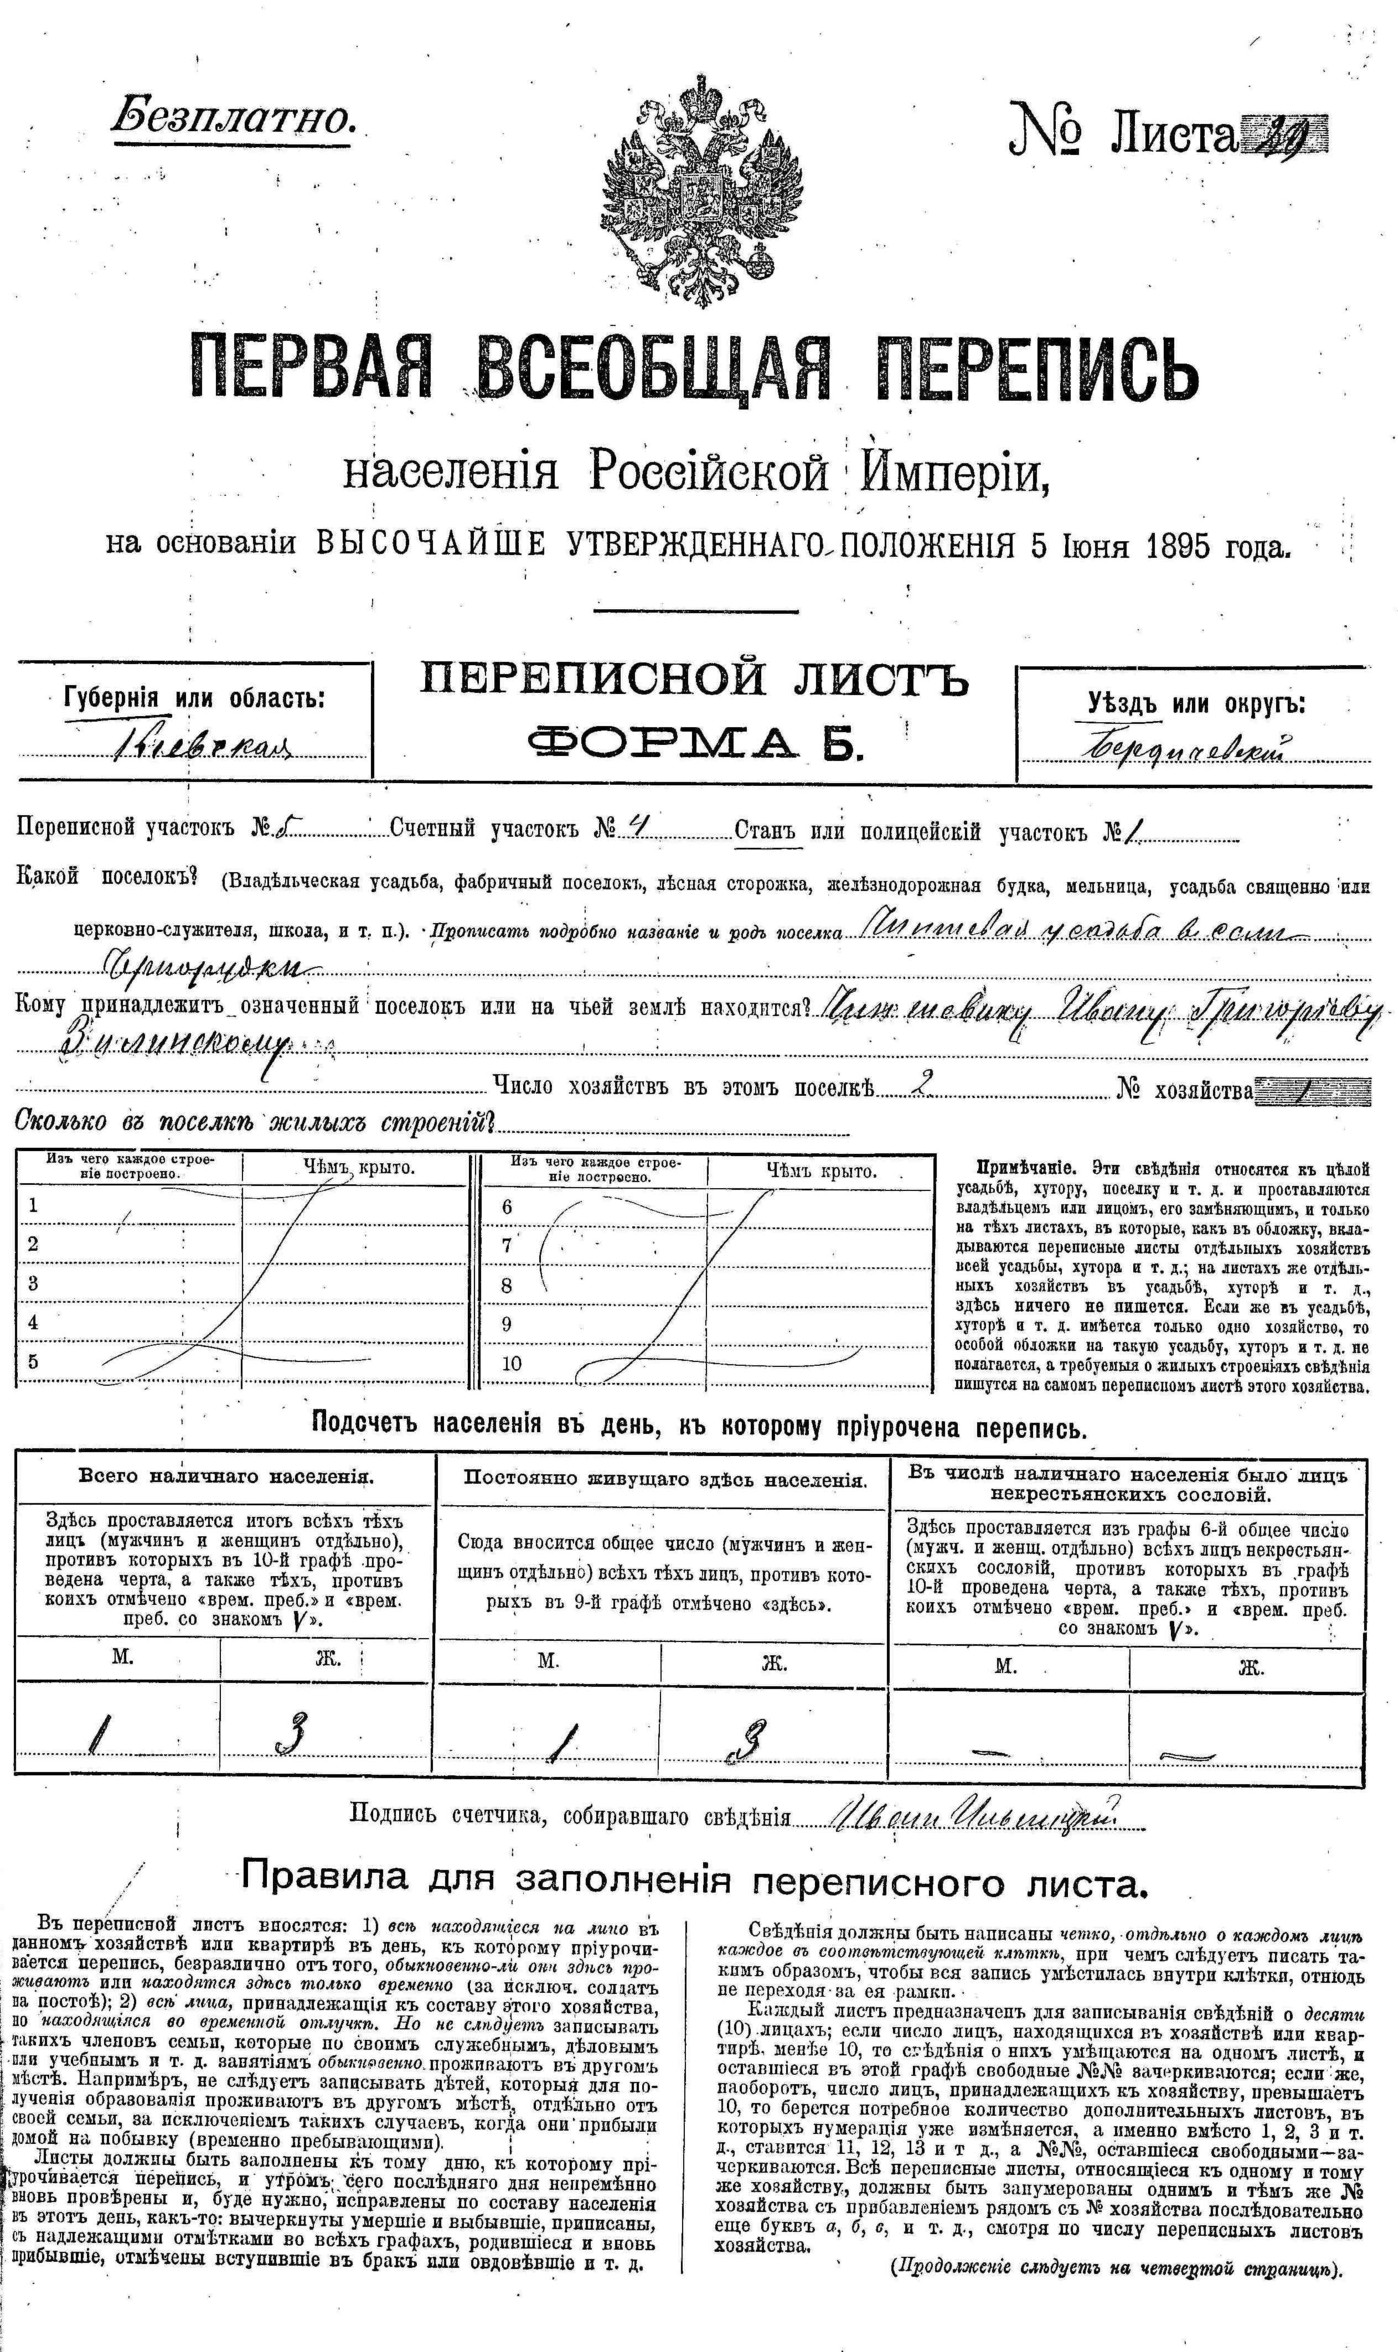 Безплатно.
№ Листа 29
ПЕРВАЯ ВСЕОБЩАЯ ПЕРЕПИСЬ
населенія Россійской Имперіи,
на основаніи ВЫСОЧАЙШЕ УТВЕРЖДЕННАГО ПОЛОЖЕНІЯ 5 Іюня 1895 года.
Губернія или область:
Кіевская
ПЕРЕПИСНОЙ ЛИСТЪ
ФОРМА Б.
Уѣздъ или округъ:
Бердичевскій
Переписной участокъ № 5 Счетный участокъ № 4 Станъ или полицейскій участокъ № 1
Какой поселокъ? (Владѣльческая усадьба, фабричный поселокъ, лѣсная сторожка, желѣзнодорожная будка, мельница, усадьба священно или
церковно-служителя, школа, и т. п.). Прописать подробно названіе и родъ поселка усадьба в сели
Чернорудки
Кому принадлежитъ означенный поселокъ или на чьей землѣ находится? Чиншевику Ивану Григоріеву
Вилинскому
Число хозяйствъ въ этомъ поселкѣ 2 № хозяйства 1
Сколько въ поселкѣ жилыхъ строеній?
Изъ чего каждое строеніе построено. Чѣмъ крыто. Изъ чего каждое строеніе построено. Чѣмъ крыто.
1 6
2 7
3 8
4 9
5 10
Примѣчаніе. Эти свѣдѣнія относятся къ цѣлой
усадьбѣ, хутору, поселку и т. д. и проставляются
владѣльцемъ или лицомъ, его замѣняющимъ, и только
на тѣхъ листахъ, въ которые, какъ въ обложку, вкла-
дываются переписные листы отдѣльныхъ хозяйствъ
всей усадьбы, хутора и т. д.; на листахъ же отдѣль-
ныхъ хозяйствъ въ усадьбѣ, хуторѣ и т. д.,
здѣсь ничего не пишется. Если же въ усадьбѣ,
хуторѣ и т. д. имѣется только одно хозяйство, то
особой обложки на такую усадьбу, хуторъ и т. д. не
полагается, а требуемыя о жилыхъ строеніяхъ свѣдѣнія
пишутся на самомъ переписномъ листѣ этого хозяйства.
Подсчетъ населенія въ день, къ которому пріурочена перепись.
Всего наличнаго населенія.
Здѣсь проставляется итогъ всѣхъ тѣхъ
лицъ (мужчинъ и женщинъ отдѣльно),
противъ которыхъ въ 10-й графѣ про-
ведена черта, а также тѣхъ, противъ
коихъ отмѣчено «врем. преб.» и «врем.
преб. со знакомъ V».
М. Ж.
1 3
Постоянно живущаго здѣсь населенія.
Сюда вносится общее число (мужчинъ и жен-
щинъ отдѣльно) всѣхъ тѣхъ лицъ, противъ кото-
рыхъ въ 9-й графѣ отмѣчено «здѣсь».
М. Ж.
1 3
Въ числѣ наличнаго населенія было лицъ
некрестьянскихъ сословій.
Здѣсь проставляется изъ графы 6-й общее число
(мужч. и женщ. отдѣльно) всѣхъ лицъ некрестьян-
скихъ сословій, противъ которыхъ въ графѣ
10-й проведена черта, а также тѣхъ, противъ
коихъ отмѣчено «врем. преб.» и «врем. преб.
со знакомъ V».
М. Ж.
— —
Подпись счетчика, собиравшаго свѣдѣнія Иванъ Ильницкій
Правила для заполненія переписного листа.
Въ переписной листъ вносятся: 1) всѣ находящіеся на лицо въ
данномъ хозяйствѣ или квартирѣ въ день, къ которому пріурочи-
вается перепись, безразлично отъ того, обыкновенно-ли они здѣсь про-
живаютъ или находятся здѣсь только временно (за исключ. солдатъ
на постоѣ); 2) всѣ лица, принадлежащія къ составу этого хозяйства,
но находящіяся во временной отлучкѣ. Но не слѣдуетъ записывать
такихъ членовъ семьи, которые по своимъ служебнымъ, дѣловымъ
или учебнымъ и т. д. занятіямъ обыкновенно проживаютъ въ другомъ
мѣстѣ. Напримѣръ, не слѣдуетъ записывать дѣтей, которыя для по-
лученія образованія проживаютъ въ другомъ мѣстѣ, отдѣльно отъ
своей семьи, за исключеніемъ такихъ случаевъ, когда они прибыли
домой на побывку (временно пребывающими).
Листы должны быть заполнены къ тому дню, къ которому прі-
урочивается перепись, и утромъ сего послѣдняго дня непремѣнно
вновь провѣрены и, буде нужно, исправлены по составу населенія
въ этотъ день, какъ-то: вычеркнуты умершіе и выбывшіе, приписаны,
съ надлежащими отмѣтками во всѣхъ графахъ, родившіеся и вновь
прибывшіе, отмѣчены вступившіе въ бракъ или овдовѣвшіе и т. д.
Свѣдѣнія должны быть написаны четко, отдѣльно о каждомъ лицѣ
каждое въ соотвѣтствующей клѣткѣ, при чемъ слѣдуетъ писать та-
кимъ образомъ, чтобы вся запись умѣстилась внутри клѣтки, отнюдь
не переходя за ея рамки.
Каждый листъ предназначенъ для записыванія свѣдѣній о десяти
(10) лицахъ; если число лицъ, находящихся въ хозяйствѣ или квар-
тирѣ, менѣе 10, то свѣдѣнія о нихъ умѣщаются на одномъ листѣ, и
оставшіеся въ этой графѣ свободные №№ зачеркиваются; если же,
наоборотъ, число лицъ, принадлежащихъ къ хозяйству, превышаетъ
10, то берется потребное количество дополнительныхъ листовъ, въ
которыхъ нумерація уже измѣняется, а именно вмѣсто 1, 2, 3 и т.
д., ставится 11, 12, 13 и т д., а №№, оставшіеся свободными—за-
черкиваются. Всѣ переписные листы, относящіеся къ одному и тому
же хозяйству, должны быть занумерованы однимъ и тѣмъ же №
хозяйства съ прибавленіемъ рядомъ съ № хозяйства послѣдовательно
еще буквъ а, б, в, и т. д., смотря по числу переписныхъ листовъ
хозяйства.
(Продолженіе слѣдуетъ на четвертой страницѣ).